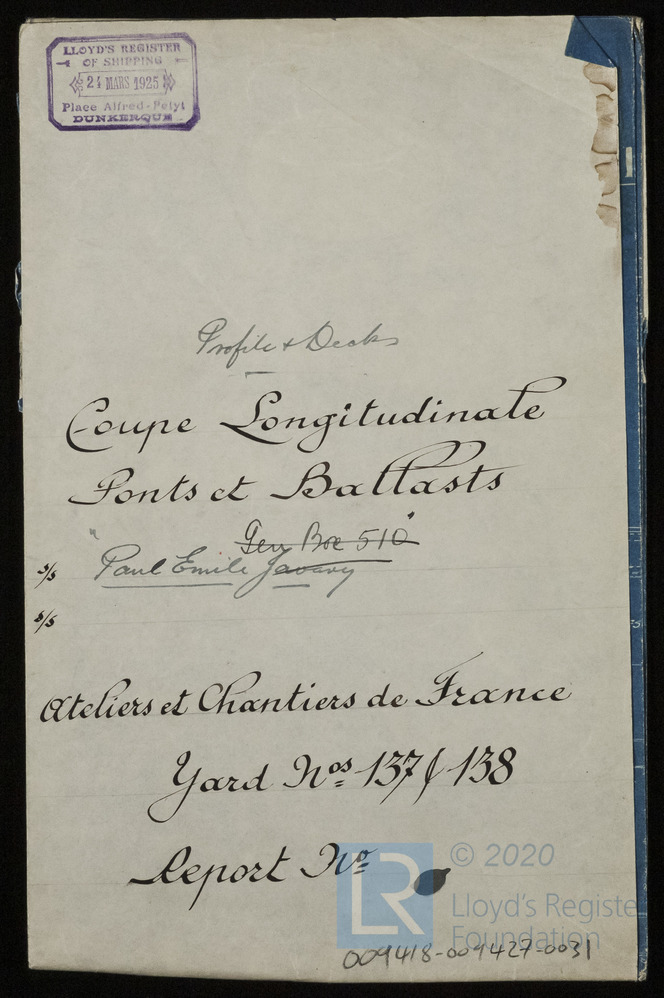 LLOYD'S REGISTER
OF SHIPPING
24 MARS 1925
Place Alfred-Petyt
DUNKERQUE
Profile & Decks
Coupe Longitudinale
Ponts et Ballasts
Gen Box 510
s/s "Paul Emile Javary"
s/s
Ateliers et Chantiers de France
Yard Nos 137/138
Report No
LR
© 2020
Lloyd's Registe
Foundation
009418-009427-0031